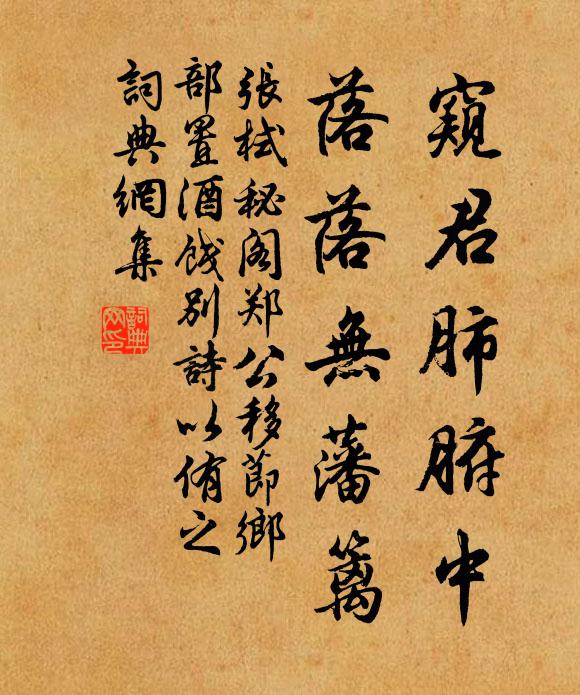 窺君肺腑中
落落無藩籬
張栻秘阁郑公移節鄉
部置酒餞別詩以侑之
詞典網集
詞典網印